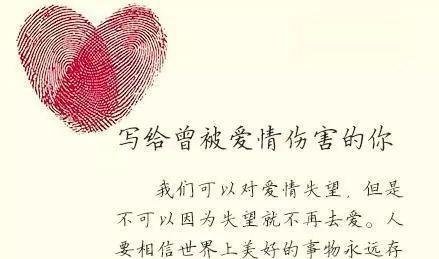 写给曾被爱情伤害的你
我们可以对爱情失望，但是
不可以因为失望就不再去爱。人
要相信世界上美好的事物永远存